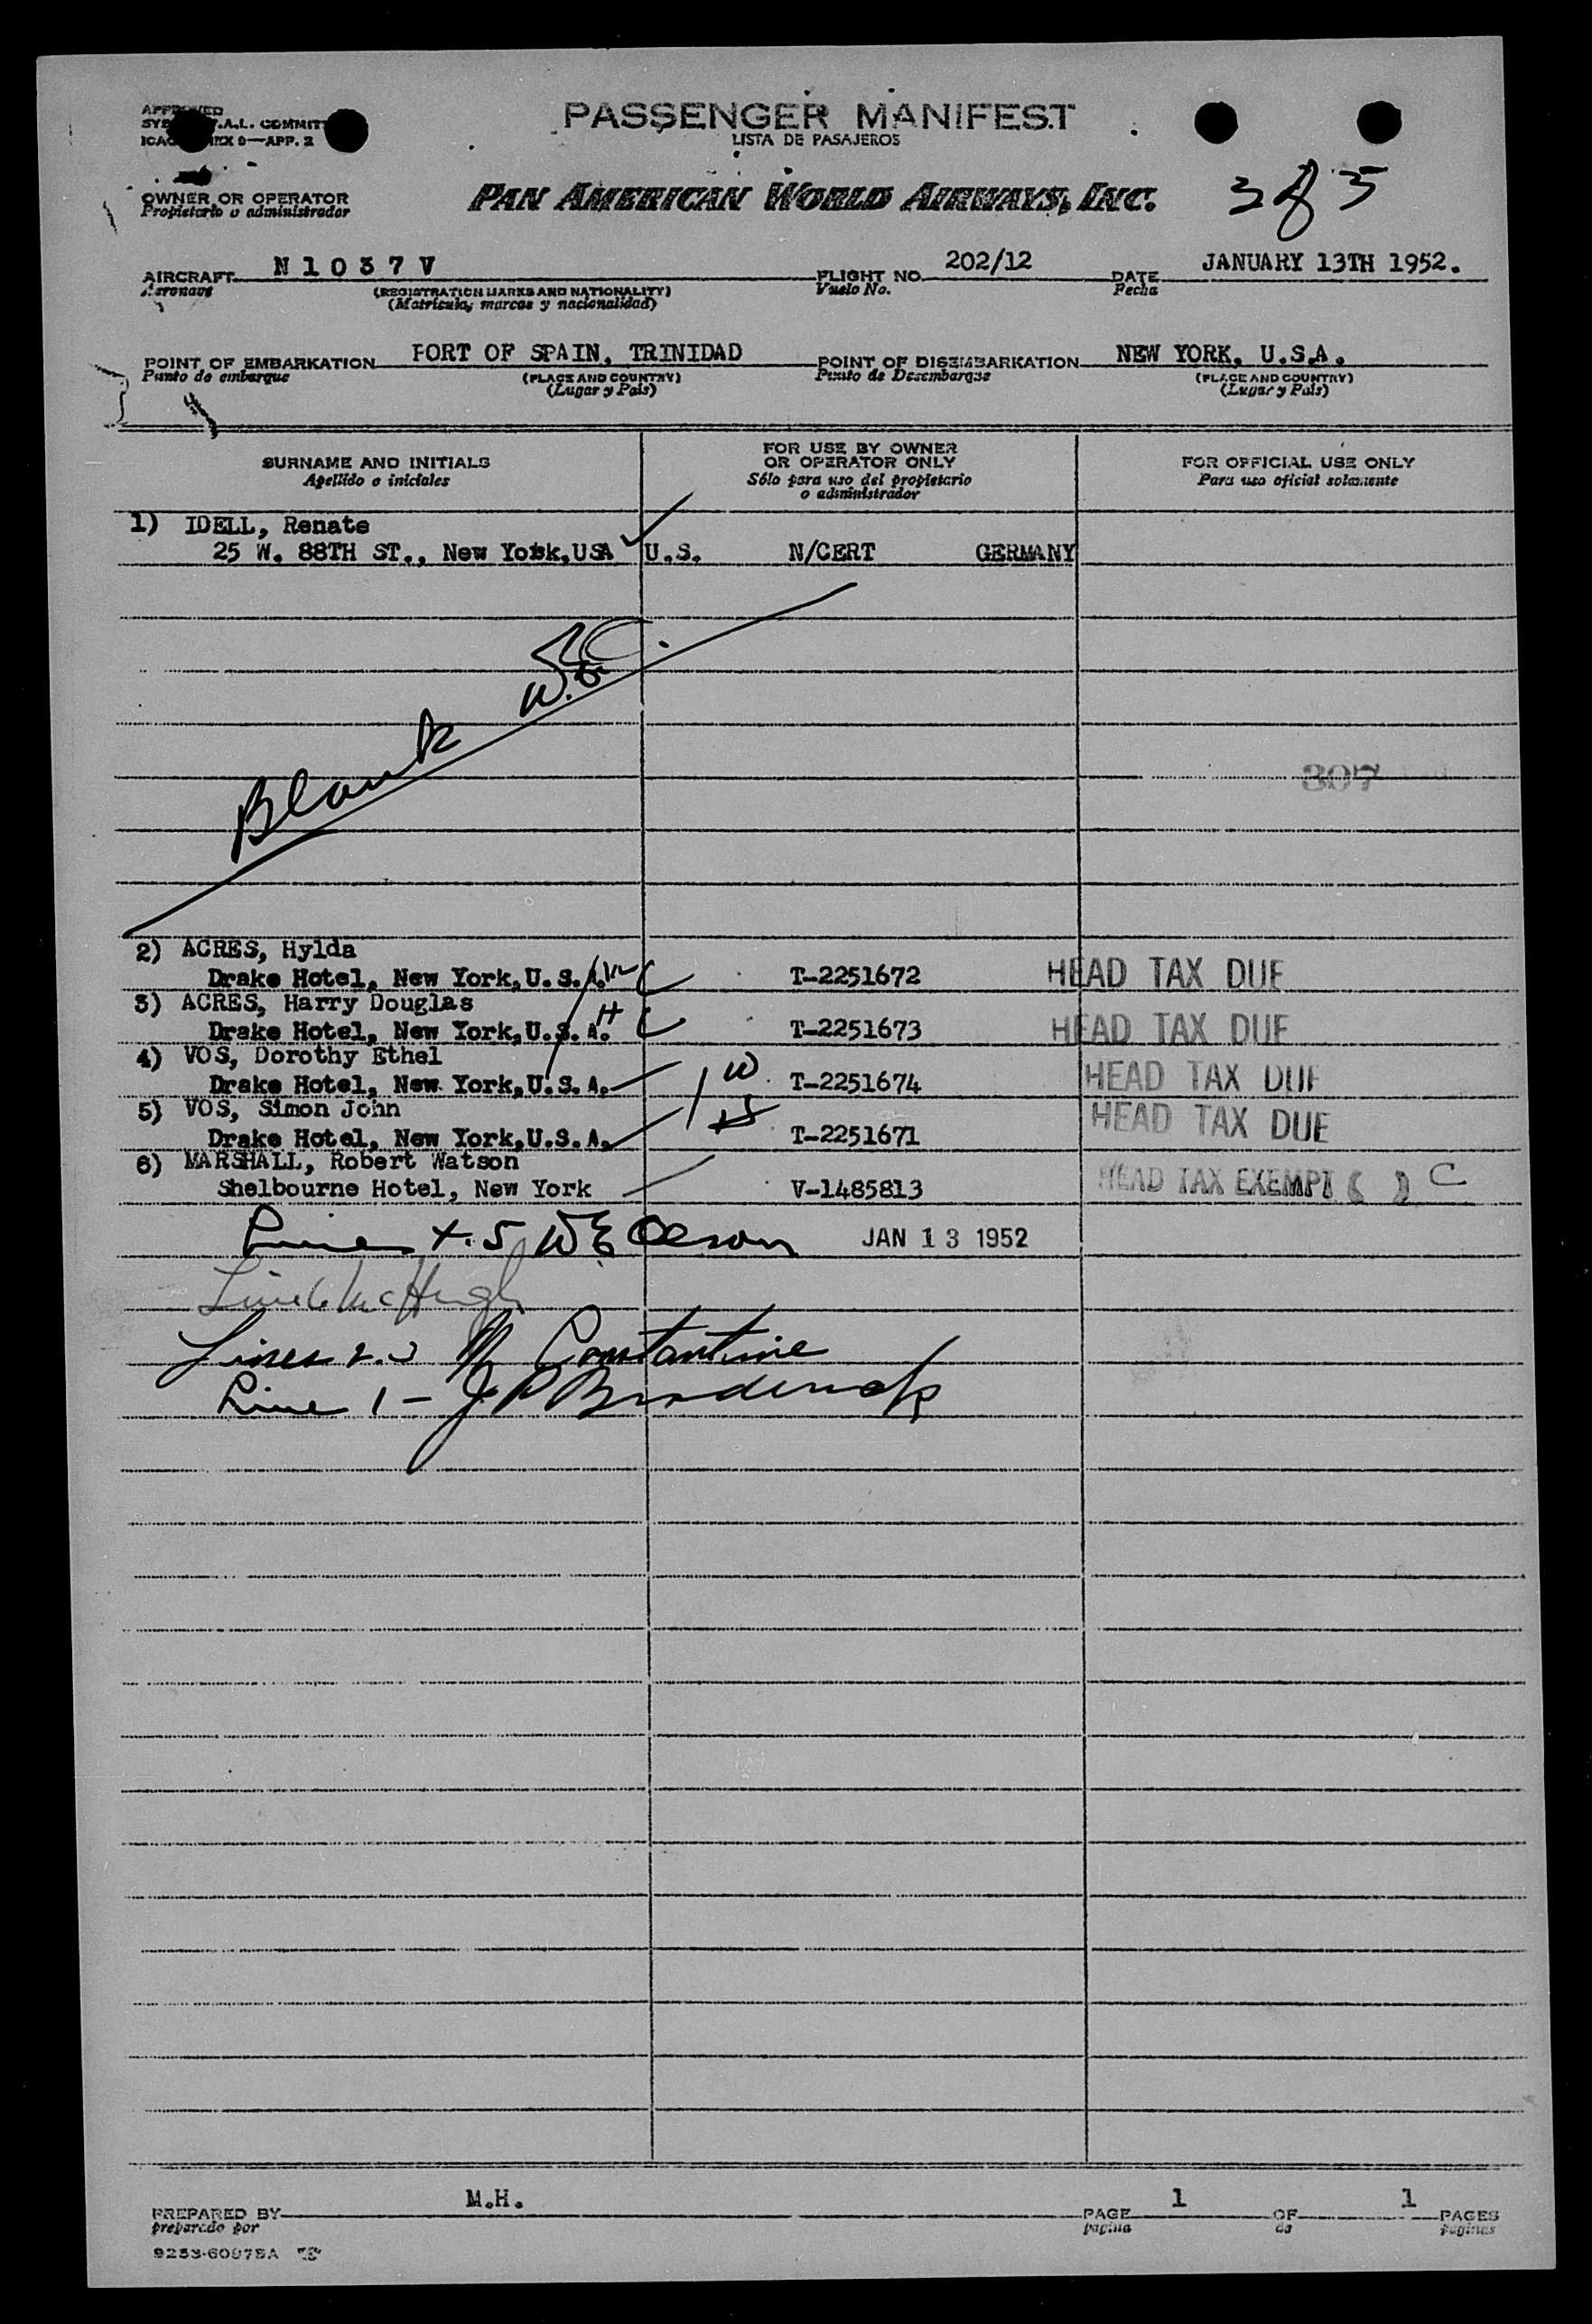 PASSENGER MANIFEST
LISTA DE PASAJEROS
OWNER OR OPERATOR
Propietario o administrador
PAN AMERICAN WORLD AIRWAYS, INC.
3 of 5
AIRCRAFT N1037V FLIGHT NO. 202/12 DATE JANUARY 13TH 1952.
Aeronave (REGISTRATION MARKS AND NATIONALITY) Vuelo No. Fecha
(Matricula, marcas y nacionalidad)
POINT OF EMBARKATION PORT OF SPAIN, TRINIDAD POINT OF DISEMBARKATION NEW YORK, U.S.A.
Punto de embarque (PLACE AND COUNTRY) Punto de Desembarque (PLACE AND COUNTRY)
(Lugar y País) (Lugar y País)
SURNAME AND INITIALS
Apellido e iniciales
FOR USE BY OWNER
OR OPERATOR ONLY
Sólo para uso del propietario
o administrador
FOR OFFICIAL USE ONLY
Para uso oficial solamente
1) IDELL, Renate
25 W. 88TH ST., New York,USA U.S. N/CERT GERMANY
Blank
307
2) ACRES, Hylda
Drake Hotel, New York,U.S.A. T-2251672 HEAD TAX DUE
3) ACRES, Harry Douglas
Drake Hotel, New York,U.S.A. H T-2251673 HEAD TAX DUE
4) VOS, Dorothy Ethel
Drake Hotel, New York,U.S.A. W T-2251674 HEAD TAX DUE
5) VOS, Simon John
Drake Hotel, New York,U.S.A. T-2251671 HEAD TAX DUE
6) MARSHALL, Robert Watson
Shelbourne Hotel, New York V-1485813 HEAD TAX EXEMPT ( ) C
Lines 4.5 WE Olson JAN 13 1952
Line 6 McHugh
Lines 2.3 Constantine
Line 1 - J P Broderick
PREPARED BY M.H. PAGE 1 OF 1 PAGES
preparado por pagina de paginas
9253-60975A